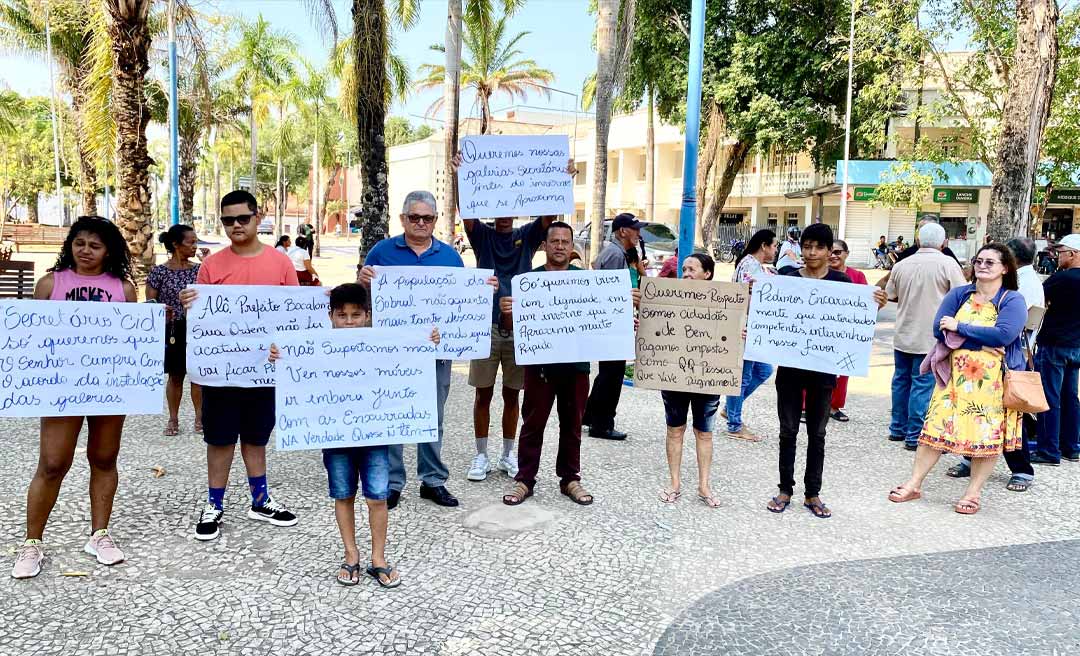 MICKEY
"Secretário "Cid"
só queremos que
o Senhor Cumpra Com
o acordo da instalação
das galerias.
Alô, Prefeito Bocalom
Sua Ordem não
acatada
vai ficar P
A população do
Sobral não aguenta
mais tanto descaso
endo aqui e
lagoa.
não Suportamos mais
Ver nossos móveis
ir embora junto
Com as Enxurradas
NA Verdade Quase ñ têm +
Queremos nossas
galerias Secretário
Antes do inverno
que se aproxima
Só queremos viver
com dignidade, em
um inverno que se
Aproxima muito
Rápido
Queremos Respeito
Somos cidadãos
de Bem,
Pagamos impostos
Como QQ Pessoa
Que Vive Dignamente
Pedimos Encarecida
mente que autoridades
Competentes, intervenham
A nosso favor.
#